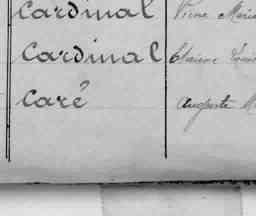 Cardinal Pierre Marie
Cardinal
Caré Auguste